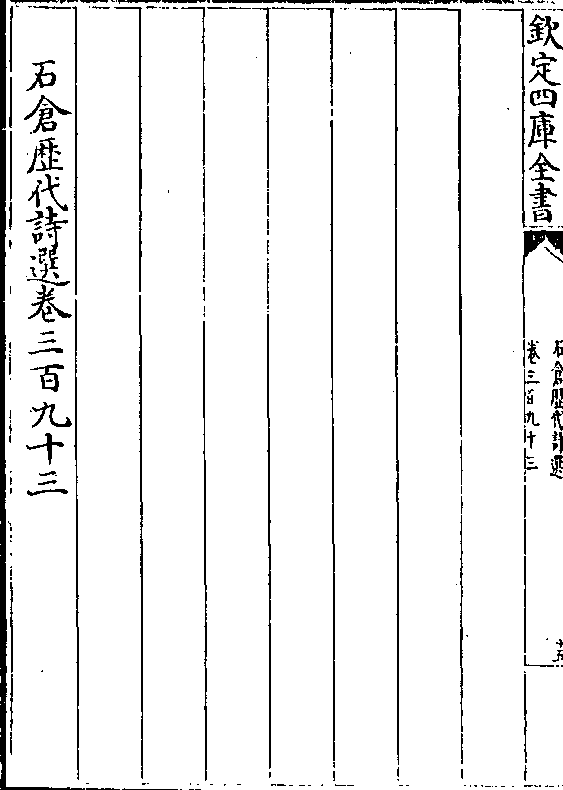 欽定四庫全書
石倉歴代詩選
卷三百九十三
十五
石倉歴代詩選卷三百九十三